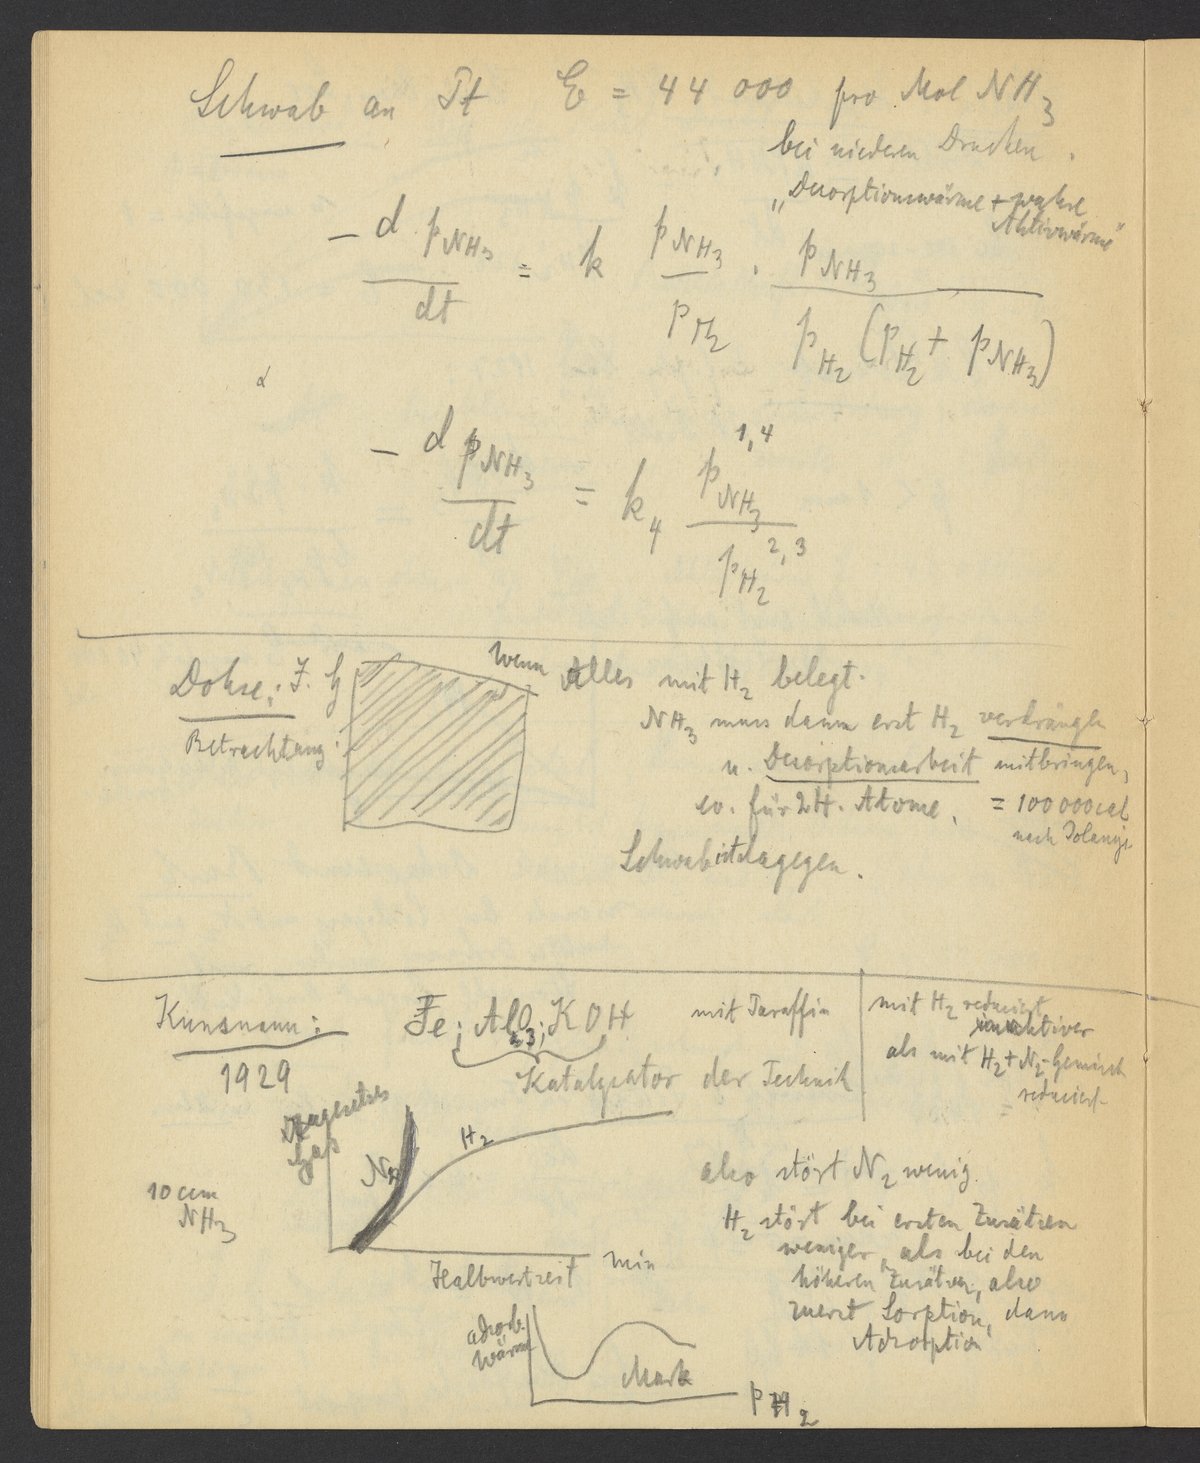 Schwab an Pt E = 44 000 pro Mol NH3
bei niederen Drucken.
„Desorptionswärme + wahre
Aktivwärme"
− d pNH3 / dt = k pNH3 / pH2 · pNH3 / pH2 (pH2 + pNH3)
α
− d pNH3 / dt = k4 pNH3^1,4 / pH2^2,3
Dohse: Z. B.
Betrachtung:
Wenn Alles mit H2 belegt.
NH3 muss dann erst H2 verdrängen
u. Desorptionsarbeit mitbringen,
ev. für 2 H. Atome, = 100 000 cal
nach Polanyi
Schwab ist dagegen.
Kunsmann:
1929
Fe; Al2O3; KOH mit Paraffin
Katalysator der Technik
mit H2 reduziert
inaktiver
als mit H2 + N2-Gemisch
reduziert
Zugesetztes
Gas
N2
H2
10 ccm
NH3
Halbwertzeit min
also stört N2 wenig.
H2 stört bei ersten Zusätzen
weniger, als bei den
höheren Zusätzen, also
zuerst Sorption, dann
Adsorption
adsorb.
wärme
Mark
pH2